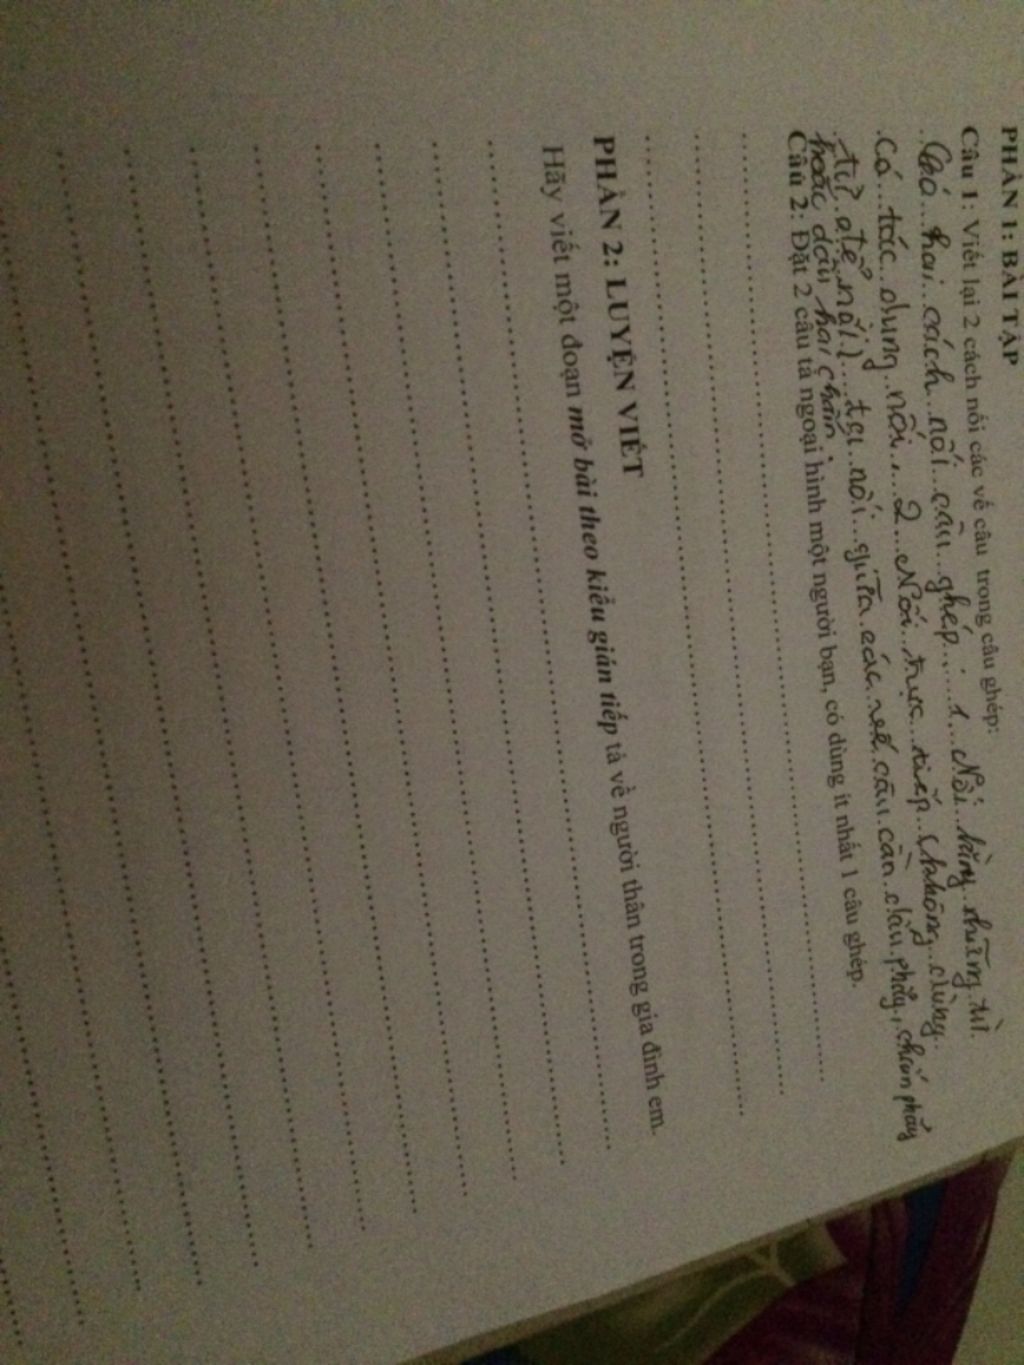 PHẦN 1: BÀI TẬP
Câu 1: Viết lại 2 cách nối các vế câu trong câu ghép:
Có hai cách nối câu ghép: 1 Nối bằng những từ
có tác dụng nối. 2 Nối trực tiếp (không dùng
từ để nối) tại nối giữa các vế câu cần dấu phẩy, chấm phẩy
hoặc dấu hai chấm.
Câu 2: Đặt 2 câu tả ngoại hình một người bạn, có dùng ít nhất 1 câu ghép.
PHẦN 2: LUYỆN VIẾT
Hãy viết một đoạn mở bài theo kiểu gián tiếp tả về người thân trong gia đình em.